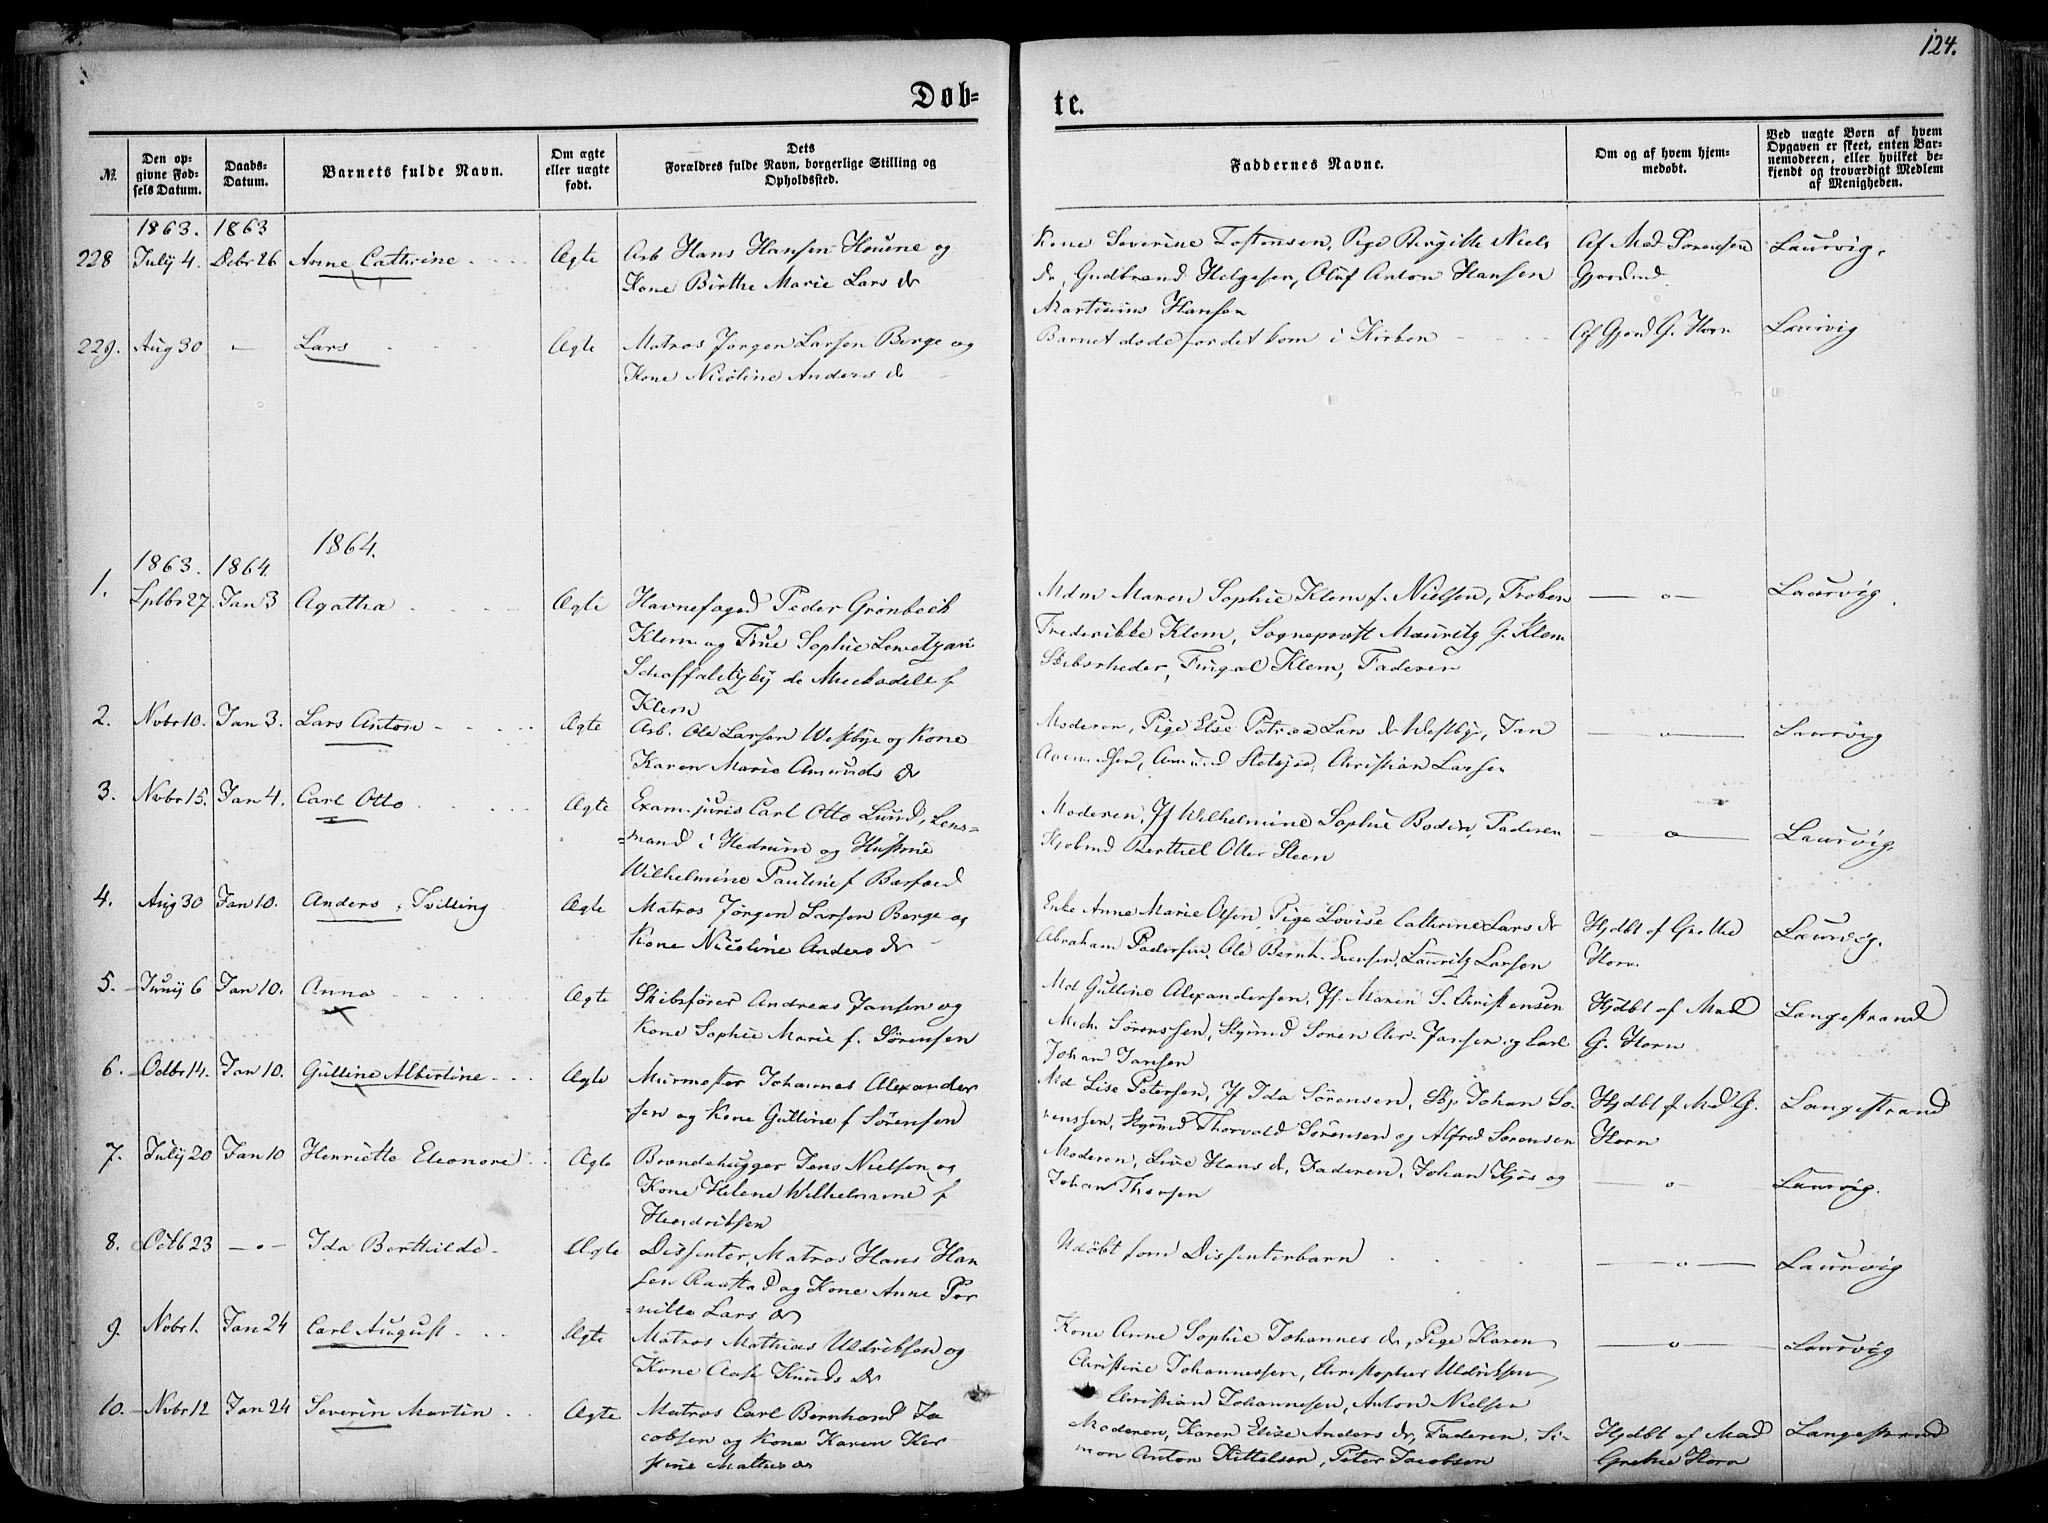 124.
Døb-
te.
№.
Den op-
givne Fød-
sels Datum.
Daabs-
Datum.
Barnets fulde Navn.
Om ægte
eller uægte
født.
Dets
Forældres fulde Navn, borgerlige Stilling og
Opholdssted.
Faddernes Navne.
Om og af hvem hjem-
medøbt.
Ved uægte Børn af hvem
Opgaven er skeet, enten Bar-
nemoderen, eller hvilket be-
kjendt og troværdigt Medlem
af Menigheden.
1863. 1863
228 July 4. Debr 26 Anne Cathrine Ægte Arb Hans Hansen Houene og
Kone Birthe Marie Lars dr
Kone Severine Tostensen, Pige Birgitte Niels
dr, Gudbrand Helgesen, Oluf Anton Hansen
Martinius Hansen
Af Mad Sørensen
Gjordmd.
Laurvig.
229. Aug 30 - Lars Ægte Matros Jørgen Larsen Berge og
Kone Nicoline Anders dr
Barnet døde før det kom i Kirken
Af Gjord G. Horn
Laurvig
1864.
1863. 1864.
1. Sptbr 27. Jan 3 Agatha Ægte Havnefoged Peder Grønbeck
Klem og Frue Sophie
de Muckadell f
Klem
Mdm Maren Sophie Klem f. Nielsen, Frøken
Frederikke Klem, Sogneprest Mauritz G. Klem
Skibsrheder, Fingal Klem, Faderen
—o—
Laurvig
2. Nvbr 10. Jan 3. Lars Anton Ægte Arb. Ole Larsen Westbye og Kone
Karen Marie Amunds dr
Moderen, Pige Else Petrea Lars dr Westbye, Jan
Amund Christian Larsen
—o—
Laurvig
3. Nvbr 15. Jan 4. Carl Otto Ægte Exam. juris Carl Otto Lund, Lens-
mand i Hedrum og Hustrue
Wilhelmine Pauline f Barfoed
Moderen, Jf Wilhelmine Sophie Bodin, Faderen
Kjøbmd Berthel Otter Steen
—o—
Laurvig.
4. Aug 30 Jan 10. Anders, Tvilling Ægte Matros Jørgen Larsen Berge og
Kone Nicoline Anders dr
Enke Anne Marie Olsen, Pige Lovise Cathrine Lars dr
Abraham Pedersen, Ole Bernh. Evensen, Lauritz Larsen
Hjdbt af Grethe
Horn.
Laurvig.
5. Juny 6 Jan 10. Anna Ægte Skibsfører Andreas Jansen og
Kone Sophie Marie f. Sørensen
Md Gulline Alexandersen, Jf. Maren S. Christensen
Mich. Sørenssen, Styrmd Søren Chr. Jansen og Carl
Johan Jansen
Hjdbt af Mad
G. Horn
Langestrand
6. Octbr 14. Jan 10. Gulline Albertine Ægte Murmester Johannes Alexander
sen og Kone Gulline f Sørensen
Md Lise Petersen, Jf Ida Sørensen, Skp Johan Sø-
renssen, Styrmd Thorvald Sørensen og Alfred Sørensen
Hjdbt af Mad G.
Horn
Langestrand
7. July 20 Jan 10 Henriette Eleonore Ægte Brændehugger Jens Nielsen og
Kone Helene Wilhelmine f
Hendriksen
Moderen, Live Hans dr, Faderen, Johan Kjøs og
Johan Thorsen
—o—
Laurvig.
8. Octb 23 —o— Ida Berthilde Ægte Dissenter, Matros Hans Han
sen Raastad og Kone Anne Per
nille Lars dr
Udøbt som Dissenterbarn
—o—
Laurvig
9. Nobr 1. Jan 24 Carl August Ægte Matros Mathias Uldriksen og
Kone Aase Knuds dr
Kone Anne Sophie Johannes dr, Pige Karen
Christine Johannessen, Christopher Uldriksen
Christian Johannesen, Anton Nielsen
—o—
Laurvig
10. Nvbr 12 Jan 24 Severin Martin Ægte Matros Carl Bernhard Ja
cobsen og Kone Karen Ker
stine Mathias dr
Moderen, Karen Elise Anders dr, Faderen, Si-
mon Anton Kittelsen, Peter Jacobsen
Hjdbt af Mad
Grethe Horn
Langestrand